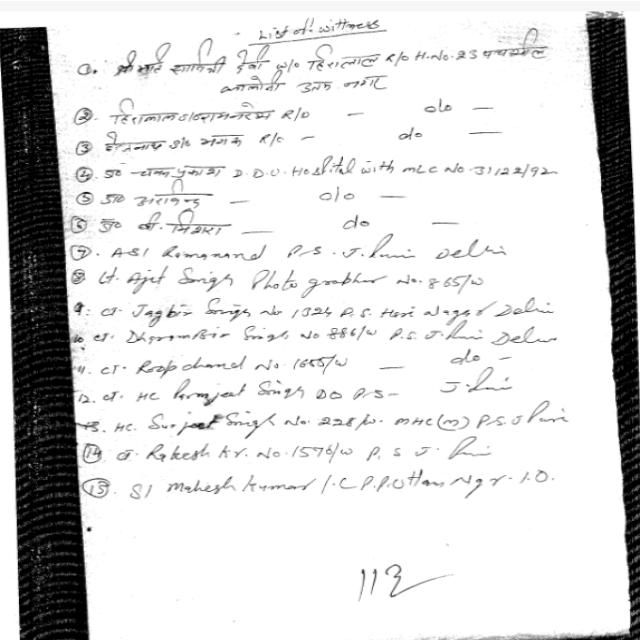 List of: wittness
①. श्रीमति सावित्री देवी w/o हिरालाल R/O H.No. 23
कालोनी उत्तम नगर
②. हिरालाल S/O रामनरेश R/O — do —
③ S/O R/O — do —
④. डा० चन्द्र प्रकाश D.D.U. Hospital with MLC No. 31122/92
⑤ डा० अरविन्द — do —
⑥ डा० वी. — do —
⑦. ASI Ramanand P.S. J. Puri Delhi
⑧ Ct. Ajit Singh Photo grapher No. 865/W
9. ct. Jagbir Singh No 1324 P.S. Hari Nagar Delhi
10. ct. Dharambir Singh No 886/W P.S. J. Puri Delhi
11. ct. Roopchand No. 1655/W — do —
12. ct. HC Paramjeet Singh DO P.S- J. Puri
13. HC. Surjeet Singh No. 228/W. MHC(M) P.S. J Puri
⑭ ct. Rakesh Kr. No. 1576/W P.S J. Puri
⑮. SI Mahesh Kumar I.C P.P. Uttam Ngr. I.O.
112